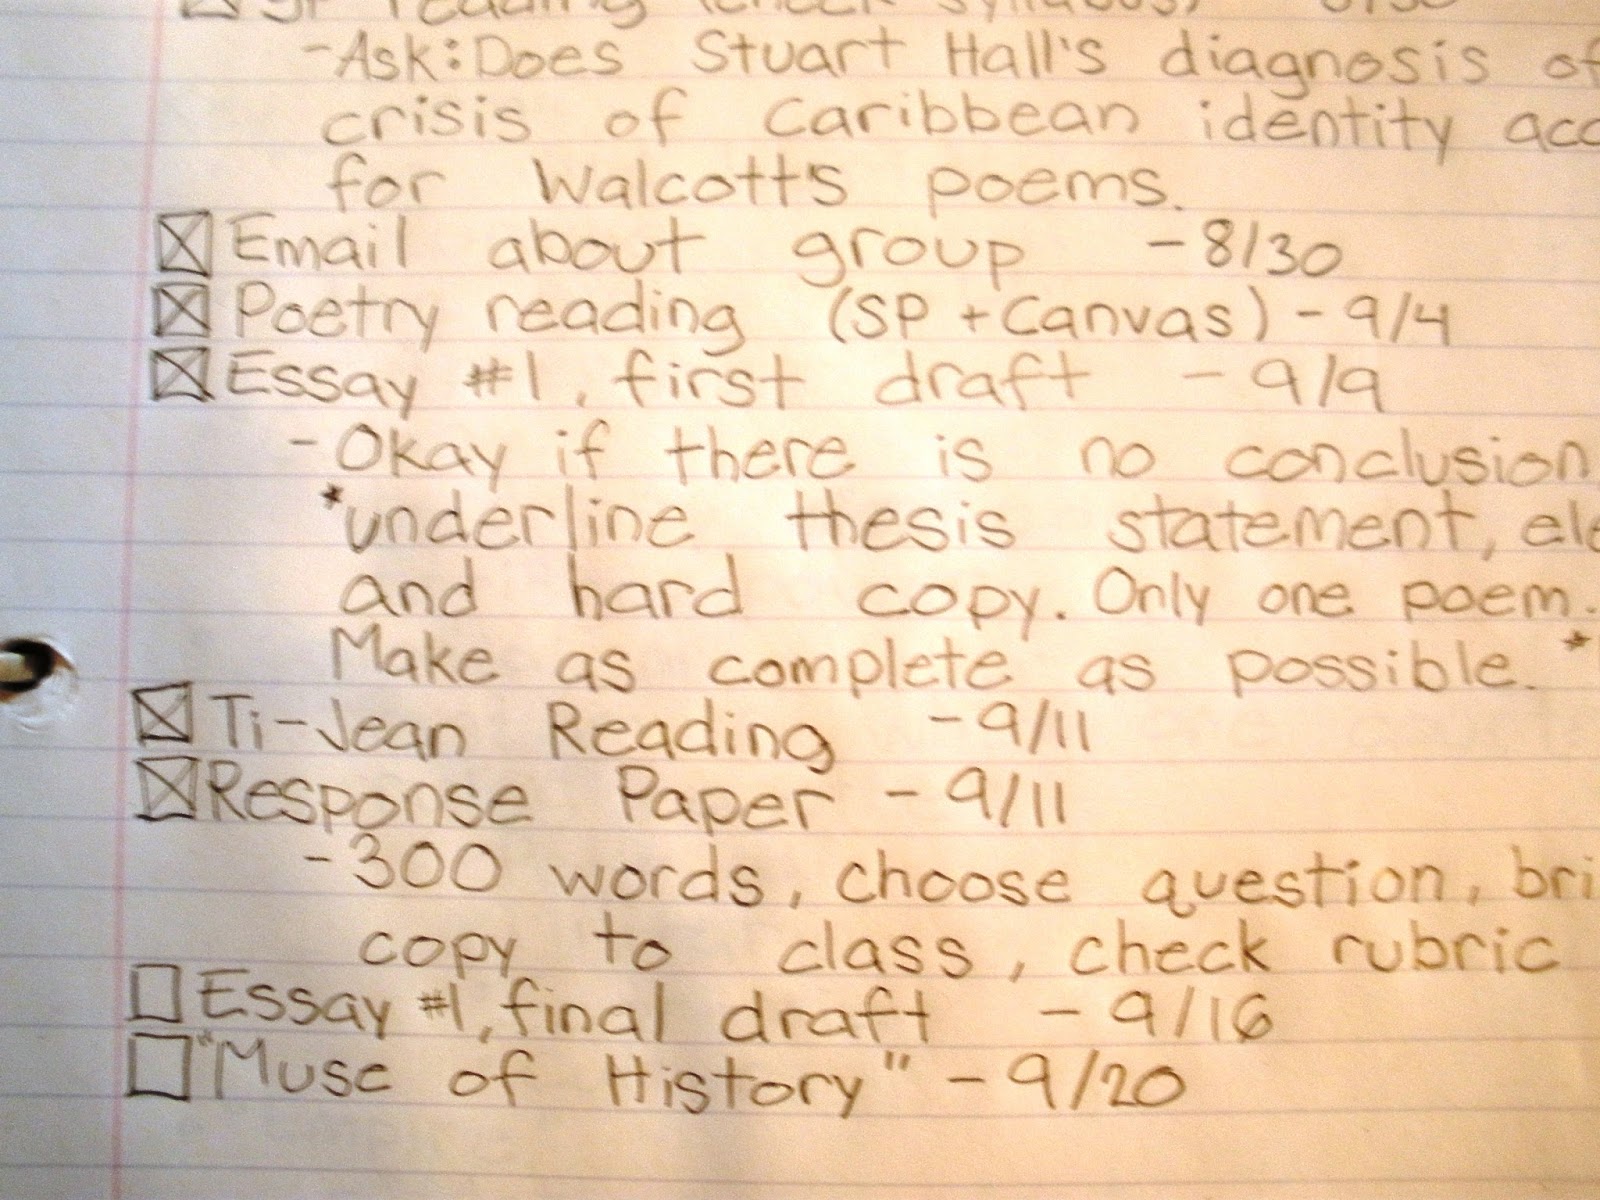 reading (check syllabus)
-Ask: Does Stuart Hall's diagnosis of
crisis of Caribbean identity acc
for Walcott's poems.
Email about group - 8/30
Poetry reading (SP + Canvas) - 9/4
Essay #1, first draft - 9/9
- Okay if there is no conclusion
*underline thesis statement, ele
and hard copy. Only one poem.
Make as complete as possible.*
Ti-Jean Reading - 9/11
Response Paper - 9/11
- 300 words, choose question, bri
copy to class, check rubric
Essay #1, final draft - 9/16
"Muse of History" - 9/20